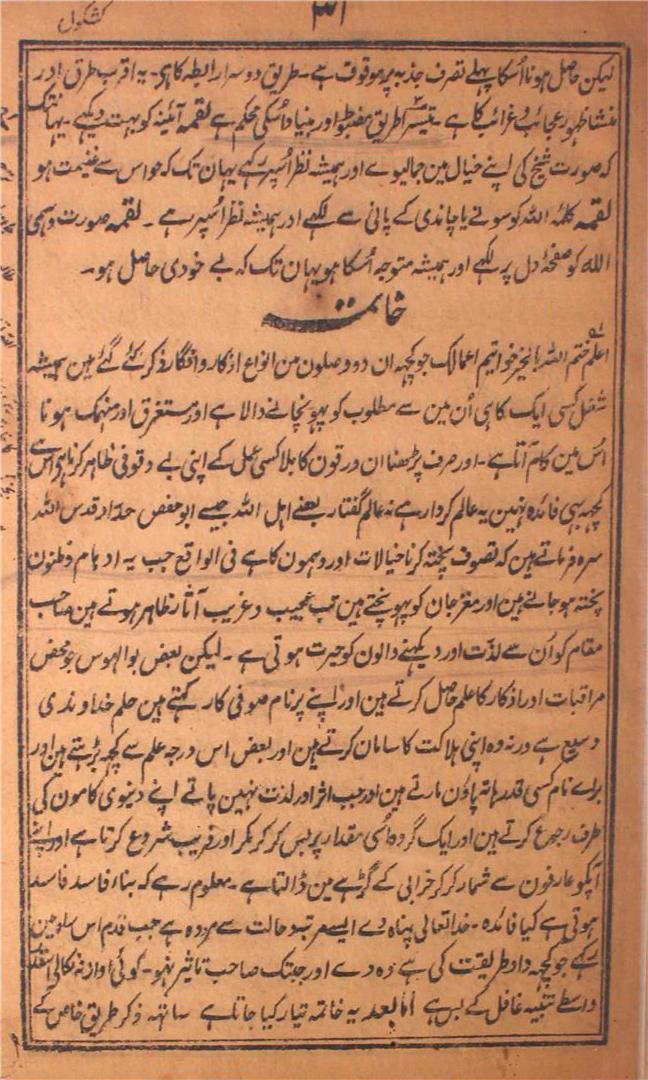 کشکول
۳۱
لیکن حاصل ہونا اُسکا پہلے تصرف جذبہ پر موقوف ہے۔ طریق دوسرا رابطہ کا ہی۔ یہ اقرب طرق اور
منشا ظہور عجائب و غرائب کا ہے۔ تیسرا طریق مضبوط اور بنیاد اُسکی محکم ہے لقمہ آئینہ کو بہت دیکہے۔ یہانتک
کہ صورت شیخ کی اپنے خیال مین جمالیوے اور ہمیشہ نظر اُسپر رکہے یہان تک کہ حواس سے غیبت ہو
لقمہ کلمۂ اللہ کو سونے یا چاندی کے پانی سے لکہے اور ہمیشہ نظر اُسپر رہے۔ لقمہ صورت وہمی
اللہ کو صفحۂ دل پر لکہے اور ہمیشہ متوجہ اُسکا ہو یہان تک کہ بے خودی حاصل ہو۔
خاتمہ
اعلم ختم اللہ بالخیر خواتیم اعمالک جو کچہہ ان دو وصلون من انواع اذکار و افکار ذکر کئے گئے ہین ہمیشہ
شغل کسی ایک کا ہی اُن مین سے مطلوب کو پہونچانے والا ہے اور مستغرق اور منہمک ہونا
اُس مین کام آتا ہے۔ اور صرف پڑھنا ان ورقون کا بلا کسی عمل کے اپنی بے وقوفی ظاہر کرنا ہی اس سے
کچہہ بہی فائدہ نہین یہ عالم کردار ہے نہ عالم گفتار بعضے اہل اللہ جیسے ابو حفص حداد قدس اللہ
سرہ فرماتے ہین کہ تصوف پختہ کرنا خیالات اور وہمون کا ہے فی الواقع جب یہ اوہام و ظنون
پختہ ہو جاتے ہین اور مغز جان کو پہونچتے ہین تب عجیب و غریب آثار ظاہر ہوتے ہین صاحب
مقام کو اُن سے لذت اور دیکہنے والون کو حیرت ہوتی ہے۔ لیکن بعض بوالہوس جو محض
مراقبات اور اذکار کا علم حاصل کرتے ہین اور اپنے پر نام صوفی کار کہتے ہین حلم خداوندی
وسیع ہے ورنہ وہ اپنی ہلاکت کا سامان کرتے ہین اور بعض اس درجہ علم سے کچہہ بڑہتے ہین اور
براے نام کسی قدر ہاتہ پاؤن مارتے ہین اور جب اثر اور لذت نہین پاتے اپنے دنیوی کامون کی
طرف رجوع کرتے ہین اور ایک گروہ اُسی مقدار پر بس کر کر مکر اور فریب شروع کرتا ہے اور اپنے
آپکو عارفون سے شمار کر کر خرابی کے گڑہے مین ڈالتا ہے۔ معلوم رہے کہ بناء فاسد فاسد
ہوتی ہے کیا فائدہ۔ خدا تعالی پناہ دے ایسے مرتبہ حالت سے مردہ ہے جب قدم اس راہ مین
رکہے جو کچہہ داد طریقت کی ہے وہ دے اور جبتک صاحب تاثیر نہو۔ کوئی آواز نہ نکالی اسقدر
واسطے تنبیہ غافل کے بس ہے اما بعد یہ خاتمہ تیار کیا جاتا ہے ساتہہ ذکر طریق خاص کے